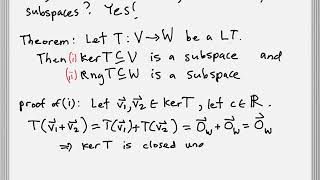 subspaces? Yes!
Theorem: Let T: V→W be a LT.
Then (i) kerT ⊆ V is a subspace and
(ii) RngT ⊆ W is a subspace
proof of (i): Let v⃗₁, v⃗₂ ∈ kerT, let c ∈ ℝ.
T(v⃗₁+v⃗₂) = T(v⃗₁)+T(v⃗₂) = 0⃗_W + 0⃗_W = 0⃗_W
⇒ kerT is closed und